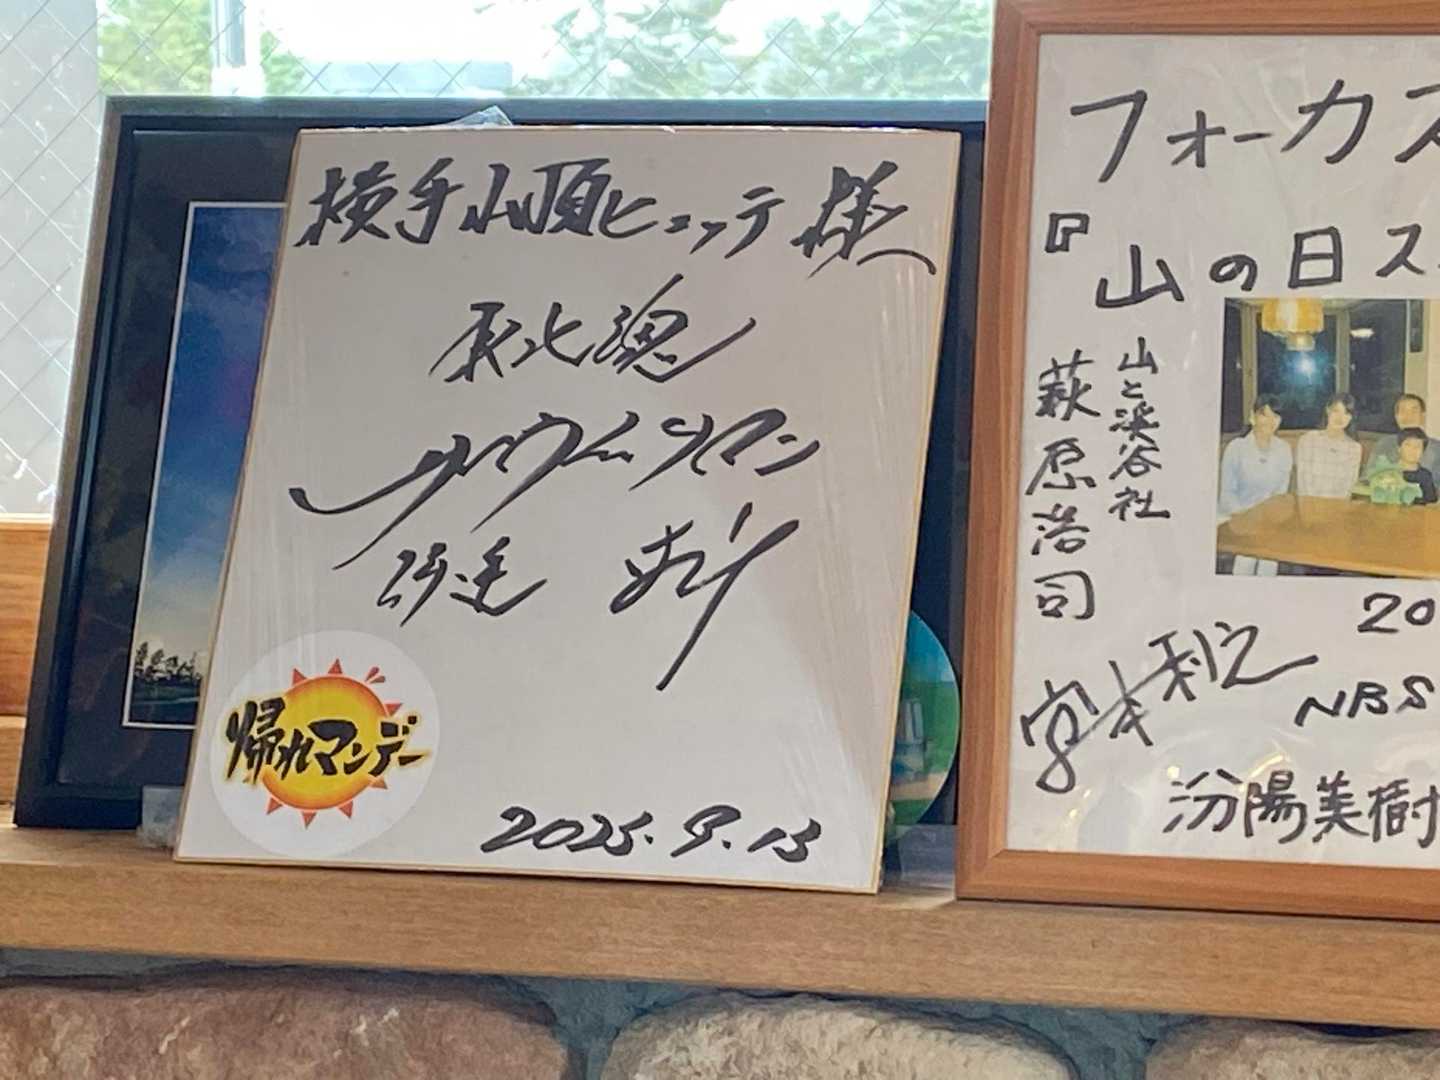 横手山頂ヒュッテ様
東北魂
サンドウィッチマン
伊達
帰れマンデー
2025.9.13
フォーカス
『山の日ス
山と渓谷社
萩原浩司
宮本利之
20
NBS
汾陽美樹